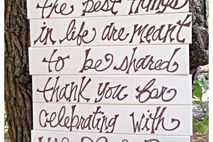 the best things
in life are meant
to be shared
thank you for
celebrating with